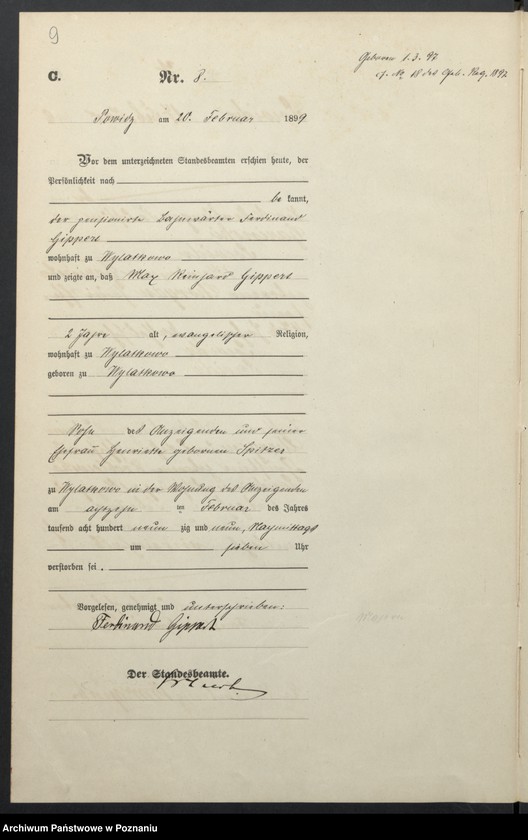 9
Geboren 1.3.97
cf. No 18 des Geb. Reg. 1897
C.
Nr. 8.
Powidz am 20. Februar 1899
Vor dem unterzeichneten Standesbeamten erschien heute, der
Persönlichkeit nach
be kannt,
der pensionirte Bahnwärter Ferdinand
Gippert
wohnhaft zu Wylatkowo
und zeigte an, daß Max Reinhard Gippert
2 Jahre alt, evangelischer Religion,
wohnhaft zu Wylatkowo
geboren zu Wylatkowo
Sohn des Anzeigenden und seiner
Ehefrau Henriette geborenen Spitzer
zu Wylatkowo in der Wohnung des Anzeigenden
am achtzehn ten Februar des Jahres
tausend acht hundert neun zig und neun, Nachmittags
um sieben Uhr
verstorben sei.
Vorgelesen, genehmigt und unterschrieben:
Ferdinand Gippert
Der Standesbeamte.
Archiwum Państwowe w Poznaniu